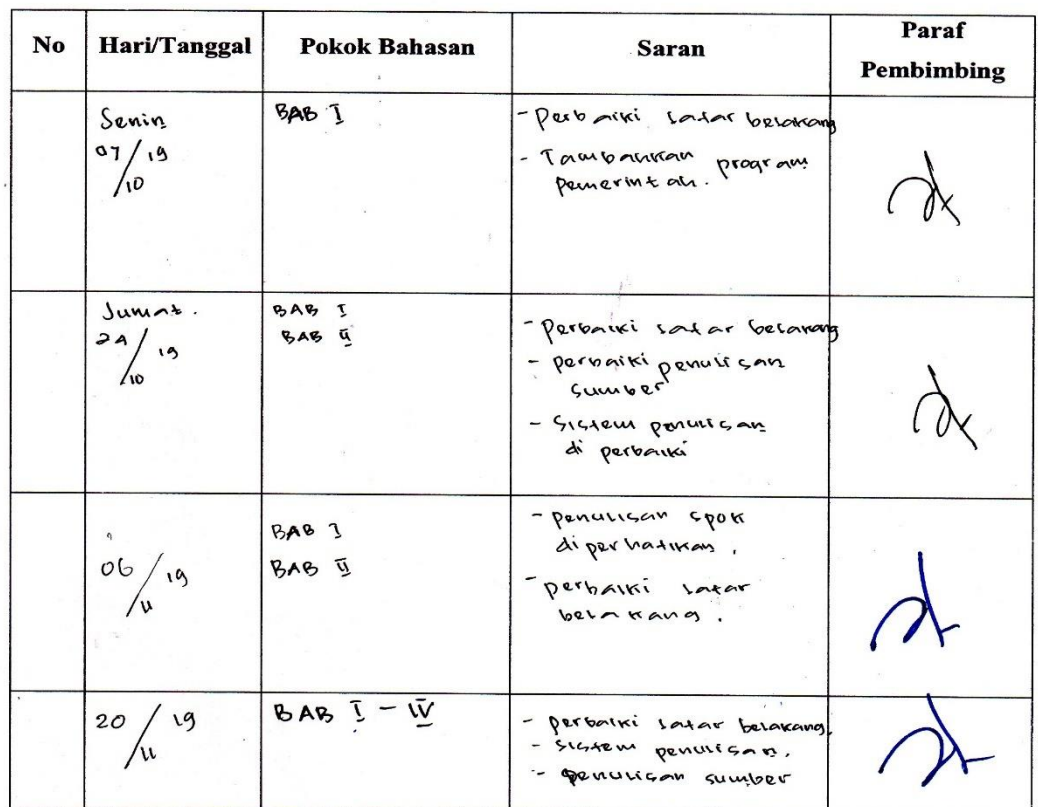 No Hari/Tanggal Pokok Bahasan Saran Paraf Pembimbing
Senin
07/10 19
BAB I
- Perbaiki latar belakang
- Tambahkan program
pemerintah.
Jumat.
24/10 19
BAB I
BAB II
- Perbaiki latar belakang
- perbaiki penulisan
sumber
- Sistem penulisan
di perbaiki
06/11 19
BAB I
BAB II
- penulisan spok
diperhatikan.
- perbaiki latar
belakang.
20/11 19
BAB I - IV
- perbaiki latar belakang.
- sistem penulisan.
- penulisan sumber